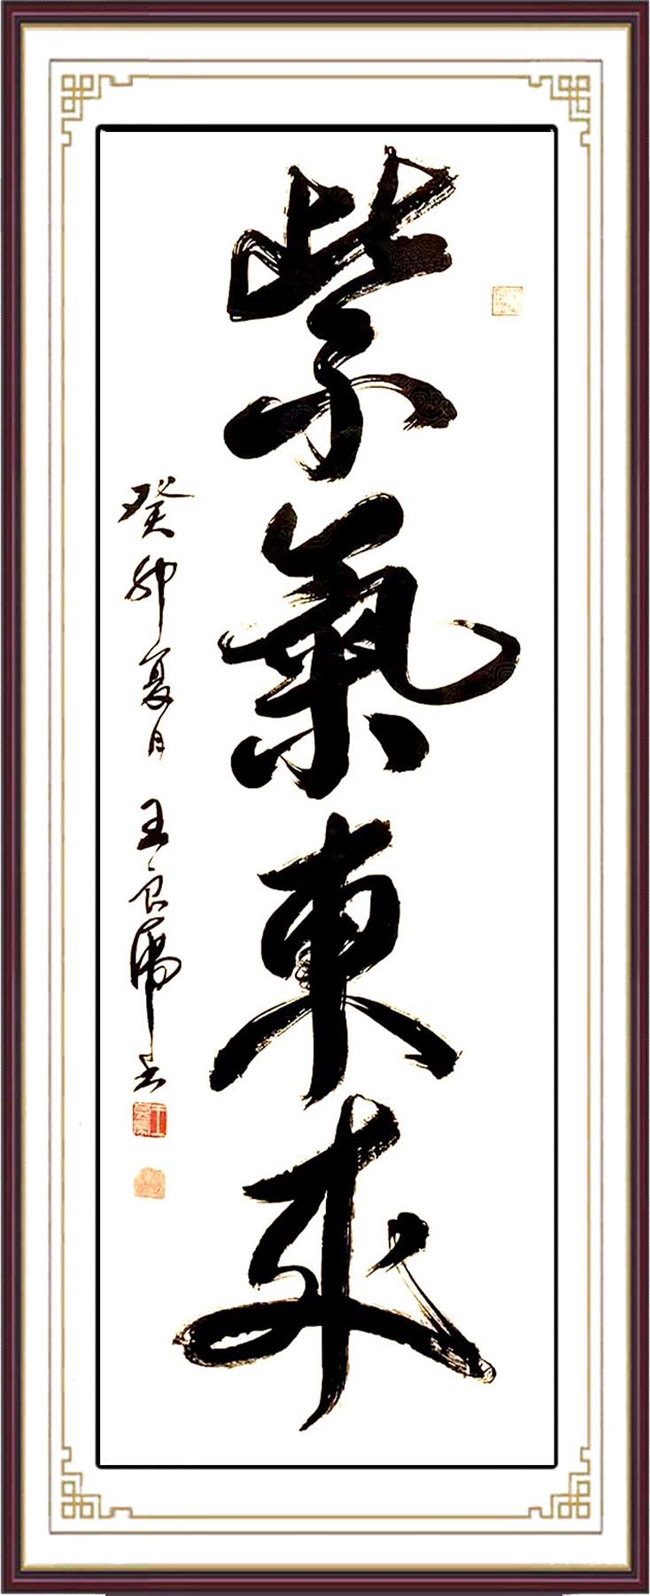 紫氣東來
癸卯夏月 王良虎書